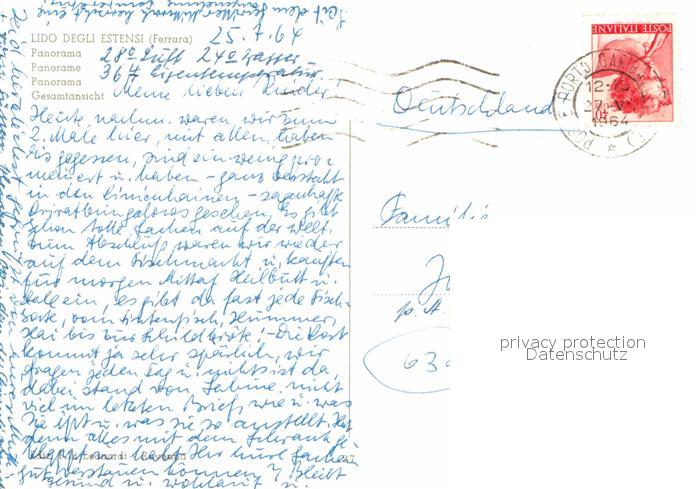 LIDO DEGLI ESTENSI (Ferrara)
Panorama
Panorame
Panorama
Gesamtansicht
25.7.64
28° Luft 24° Wasser
36,7 Eigentemperatur.
Meine lieben Kinder!
Heute nachm. waren wir zum
2. Male hier, mit allen, haben
Eis gegessen, sind ein wenig pro=
meniert u. haben – ganz versteckt
in den Pinienhainen – sagenhafte
Privatbungalows gesehen. Es gibt
schon tolle Sachen auf der Welt.
Zum Abschluß waren wir wieder
auf dem Fischmarkt u. kauften
für morgen Mittag Heilbutt u.
ein, es gibt da fast jede Fisch=
sorte, vom Tintenfisch, Hummer,
Hai bis zur Schildkröte! – Die Post
kommt ja sehr spärlich, wir
fragen jeden Tag u. nichts ist da
dabei stand von Sabine nicht
viel im letzten Brief, wie u. was
sie ißt u. was sie so anstellt. Hat
denn alles mit dem Schrank ge=
klappt u. habt Ihr Eure Sachen
gut verstauen können? Bleibt
gesund u. wohlauf u.
Deutschland
Familie
p. A.
POSTE ITALIANE
PORTO GARIBALDI
12
27
1964
privacy protection
Datenschutz